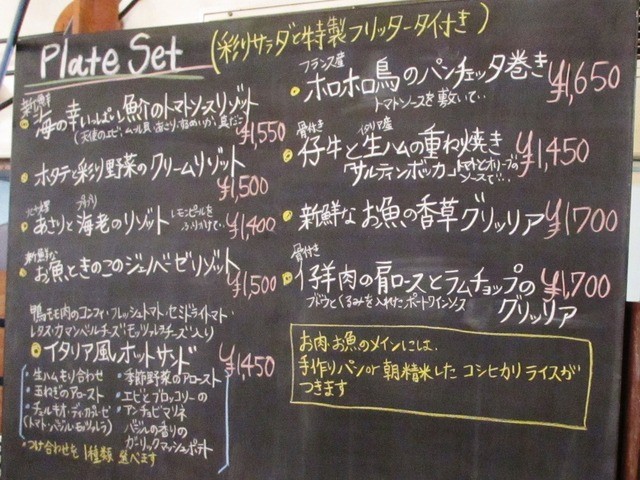 Plate Set (彩りサラダと特製フリッタータ付き)
新鮮
海の幸いっぱい魚介のトマトソースリゾット
¥1,550
ホタテと彩り野菜のクリームリゾット
¥1,500
あさりと海老のリゾット レモンピールを
ふりかけて…
¥1,400
新鮮な
お魚ときのこのジェノベーゼリゾット
¥1,500
鴨モモ肉のコンフィ・フレッシュトマト・セミドライトマト・
レタス・カマンベールチーズ・モッツァレラチーズ入り
イタリア風ホットサンド ¥1,450
・生ハムもり合わせ
・玉ねぎのアロースト
・チェルキオ・ディ・カプレーゼ
(トマト・バジル・モッツァレラ)
・季節野菜のアロースト
・エビとブロッコリーの
アンチョビマリネ
・バジルの香りの
ガーリックマッシュポテト
・つけ合わせを1種類選べます
フランス産
ホロホロ鳥のパンチェッタ巻き ¥1,650
トマトソースを敷いて…
骨付き イタリア産
仔牛と生ハムの重ね焼き ¥1,450
サルティンボッカ トマトとオリーブの
ソースで…
新鮮なお魚の香草グリッリア ¥1700
骨付き
仔羊肉の肩ロースとラムチョップの ¥1,700
ブドウとくるみを入れたポートワインソース グリッリア
お肉・お魚のメインには、
手作りパンor朝精米したコシヒカリライスが
つきます